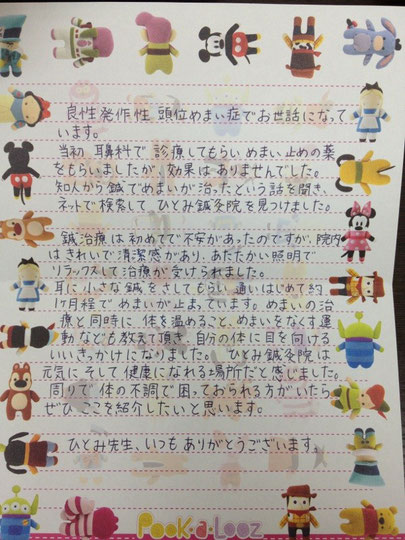 良性発作性 頭位めまい症でお世話になって
います。
当初 耳鼻科で 診療してもらい めまい止めの薬
をもらいましたが 効果は ありませんでした。
知人から 鍼でめまいが治ったという話を聞き、
ネットで検索して ひとみ鍼灸院を見つけました。
鍼治療は初めてで不安があったのですが、院内
はきれいで清潔感があり、あたたかい照明で
リラックスして治療が受けられました。
耳に小さな鍼をさしてもらい 通いはじめて約
1ヶ月程でめまいが止まっています。めまいの治
療と同時に 体を温めること、めまいをなくす運
動なども教えて頂き、自分の体に目を向ける
いいきっかけになりました。 ひとみ鍼灸院は
元気に そして 健康になれる場所だと感じました。
周りで 体の不調で困っておられる方がいたら
ぜひ ここを紹介したいと思います。
ひとみ先生、いつも ありがとうございます。
Pook-a-Looz